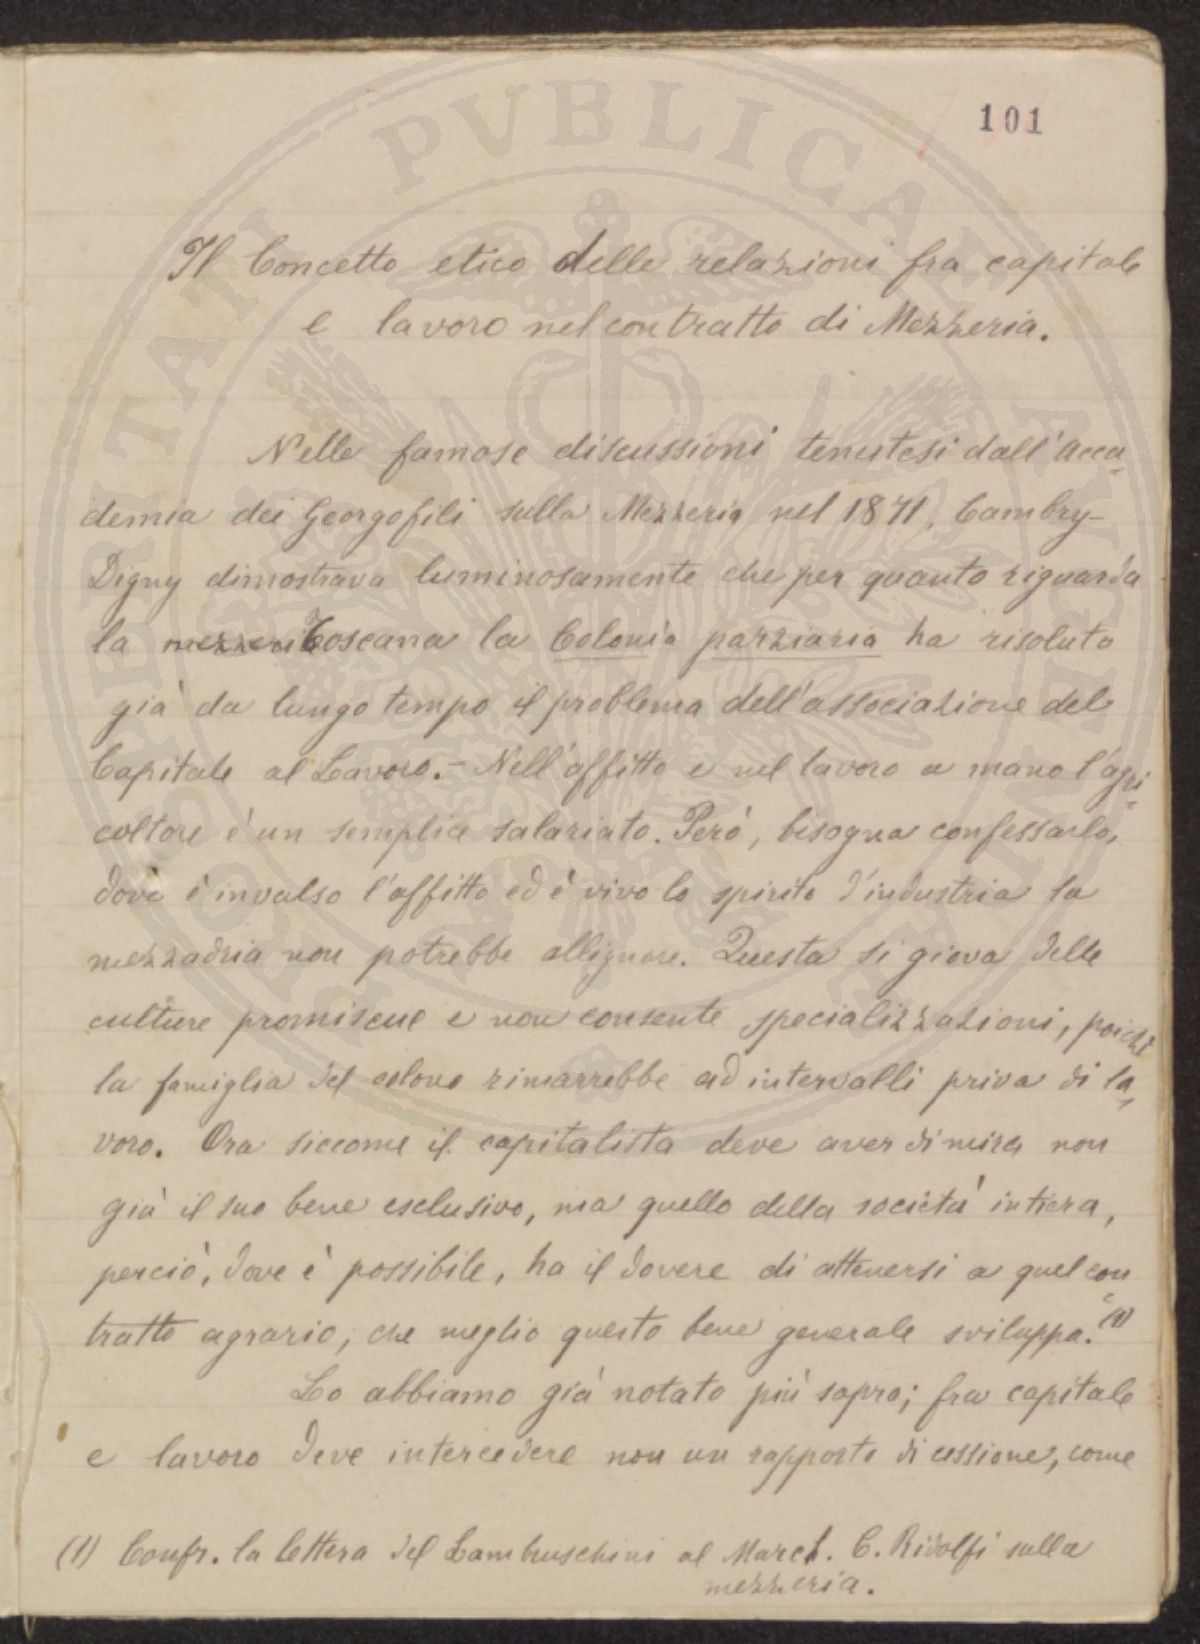 101
Il Concetto etico delle relazioni fra capitale
e lavoro nel contratto di Mezzeria.
Nelle famose discussioni tenutesi dall'Acca-
demia dei Georgofili sulla Mezzeria nel 1871, Cambry-
Digny dimostrava luminosamente che per quanto riguarda
la Toscana la Colonia parziaria ha risoluto
già da lungo tempo il problema dell'associazione del
Capitale al Lavoro.- Nell'affitto e nel lavoro a mano l'agri-
coltore è un semplice salariato. Però, bisogna confessarlo,
dove è invalso l'affitto ed è vivo lo spirito d'industria la
mezzadria non potrebbe allignare. Questa si giova delle
culture promiscue e non consente specializzazioni, poichè
la famiglia del colono rimarrebbe ad intervalli priva di la-
voro. Ora siccome il capitalista deve aver di mira non
già il suo bene esclusivo, ma quello della società intiera,
perciò, dove è possibile, ha il dovere di attenersi a quel con-
tratto agrario, che meglio questo bene generale sviluppa.(1)
Lo abbiamo già notato più sopra; fra capitale
e lavoro deve intercedere non un rapporto di cessione, come
(1) Confr. la lettera del Lambruschini al March. C. Ridolfi sulla
mezzeria.
PROSPERITATI PVBLICAE AVGENDAE